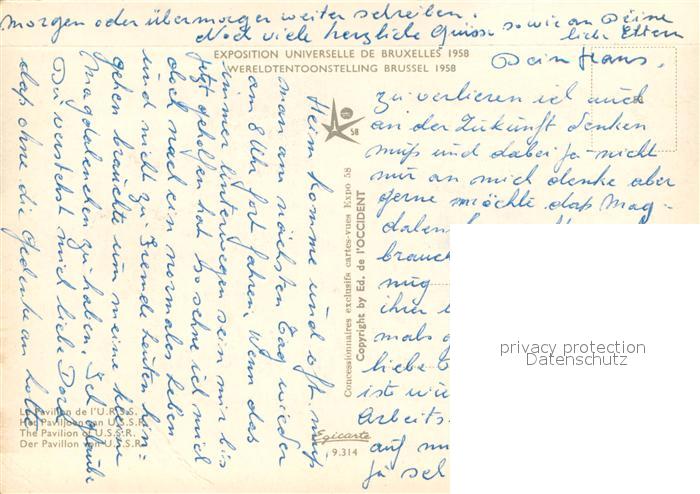 morgen oder übermorgen weiter schreiben.
Noch viele herzliche Grüsse sowie an Deine
lieb Eltern
Dein Hans.
EXPOSITION UNIVERSELLE DE BRUXELLES 1958
WERELDTENTOONSTELLING BRUSSEL 1958
58
zu verlieren ich auch
an der Zukunft denken
muß und dabei ja nicht
nur an mich denke aber
gerne möchte daß Mag-
dalen
brauch
mug
ihrer
mals
liebe
ist wie
Arbeits-
auf
ja
Heim komme und oft muß
man am nächsten Tag wieder
um 8 Uhr fort fahren. Wenn das
immer Unterwegen sein mir bis
jetzt geholfen hat so sehne ich mich
doch nach ein normales Leben
und nicht zu Fremde Leuten hin-
gehen brauchte um meine kleine
Magdalenchen zu haben. Ich glaube
Du verstehst mich liebe Dorl
daß ohne die Gedenke an
Concessionnaires exclusifs cartes-vues Expo 58
Copyright by Ed. de l'OCCIDENT
Le Pavillon de l'U.R.S.S.
Het Paviljoen van U.S.S.R.
The Pavilion of U.S.S.R.
Der Pavillon von U.S.S.R.
Egicarte
9.314
privacy protection
Datenschutz